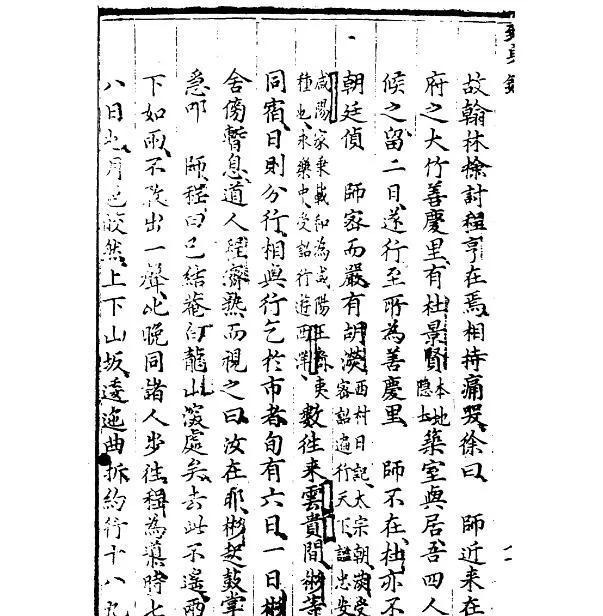 故翰林檢討程亨在焉相持痛哭徐曰　師近来在
府之大竹善慶里有杜景賢本地隱士築室與居吾四人
候之留二日遂行至所為善慶里　師不在杜亦不
朝廷偵　師密而嚴有胡濙西村日記太宗朝濙受密詔遍行天下訪忠安
咸陽家乗載和為咸陽王裔夷種也永樂中受詔行遊西洋數徃来雲貴間彬等
同宿日則分行相與行乞於市者旬有六日一日彬
舍傍暫息道人程濟熟而視之曰汝在耶彬起鼓掌
急叩　師程曰已結菴白龍山深處矣去此不遙雨
下如雨不敢出一聲比晚同諸人步徃稱為募時七
八日也月色皎然上下山坂逶迤曲折約行十八九